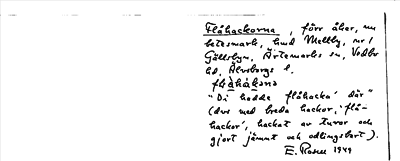 Flåhackorna, förr åker, nu
betesmark, hmd Mellby, nr 1
Gällsbyn, Ärtemarks sn, Vedbo
hd, Älvsborgs l.
flåhàkana
"Di hadde flåhacka' där"
(dvs med breda hackor, 'flå-
hackor', hackat av tuvor och
gjort jämnt och odlingsbart).
E. Rosell 1949